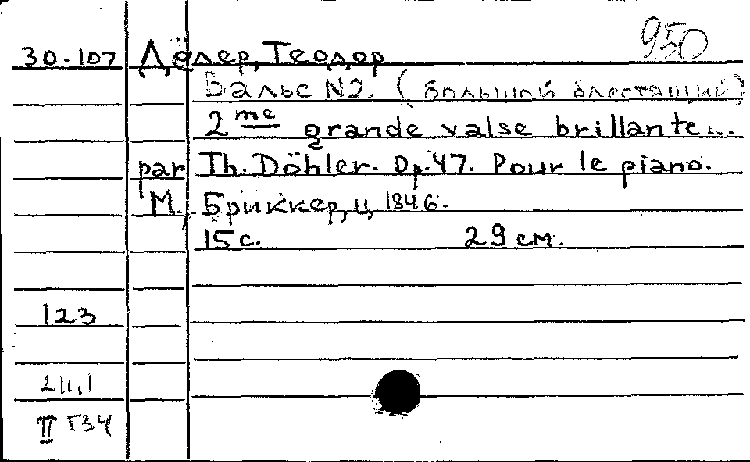 950
30-107 Дёлер, Теодор
Вальс №2. (большой блестящий)
2me grande valse brillante...
par Th. Döhler. Op.47. Pour le piano.
М., Бриккер, ц 1846.
15 с. 29 см.
123
211,1
II Г34